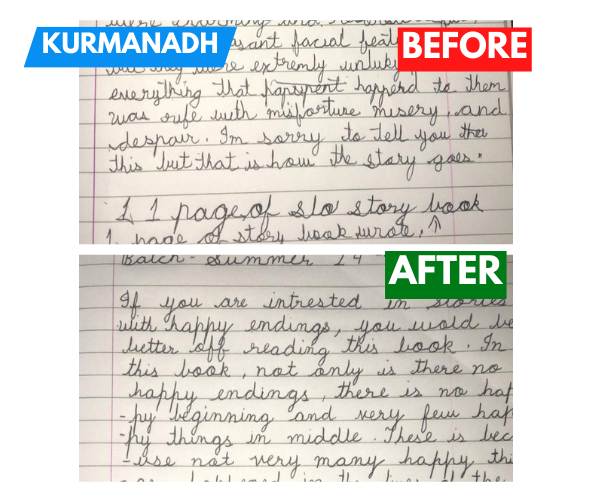 KURMANADH
BEFORE
were charming and
pleasant facial feat
but they were extremly unluky
everything that happend to them
was rife with misfortune misery, and
despair. I'm sorry to tell you
this but that is how the story goes.
1 page of slo story book
1 page of story book wrote. ↑
AFTER
Batch - Summer 24
If you are intrested in stories
with happy endings, you wold be
better off reading this book. In
this book, not only is there no
happy endings, there is no hap
-py beginning and very few hap
-py things in middle. These is bec
-use not very many happy thi
happened in the lives of the